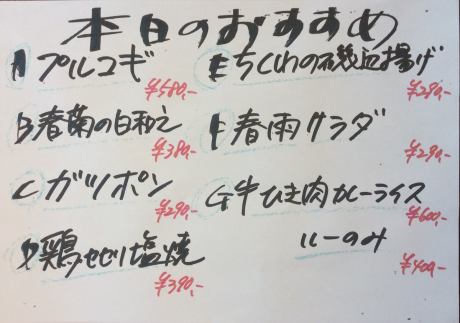 本日のおすすめ
A プルコギ
¥580,-
B 春菊の白和え
¥380,-
C ガツポン
¥290,-
D 鶏せせり塩焼
¥390,-
E ちくわの磯辺揚げ
¥290,-
F 春雨サラダ
¥290,-
G 牛ひき肉カレーライス
¥600,-
ルーのみ
¥400,-